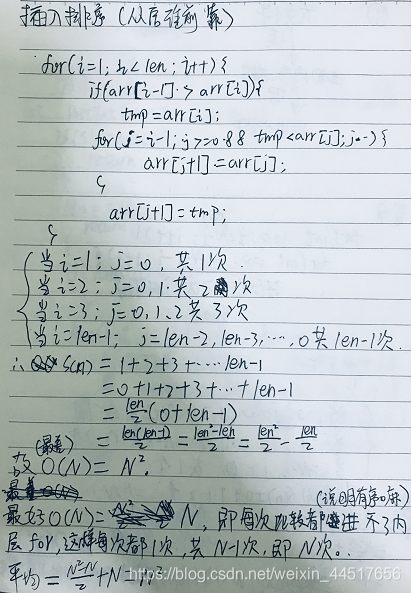 插入排序（从后往前靠）
for(i=1; i<len; i++){
if(arr[i-1] > arr[i]){
tmp=arr[i];
for(j=i-1; j>=0 && tmp<arr[j]; j--){
arr[j+1]=arr[j];
}
arr[j+1]=tmp;
}
当i=1; j=0, 共1次.
当i=2; j=0,1. 共2次
当i=3; j=0,1,2 共3次
当i=len-1; j=len-2, len-3, ..., 0 共len-1次.
∴ S(n) = 1+2+3+...len-1
= 0+1+2+3+...+len-1
= len/2 (0+len-1)
= len(len-1)/2 = len²-len/2 = len²/2 - len/2
(最差)
故 O(N) = N².
(说明有序的麻)
最好O(N)= N, 即每次比较都进不了内
层for, 这样每次都1次, 共N-1次, 即N次。
平均 = N²-N/2 + N =
https://blog.csdn.net/weixin_44517656